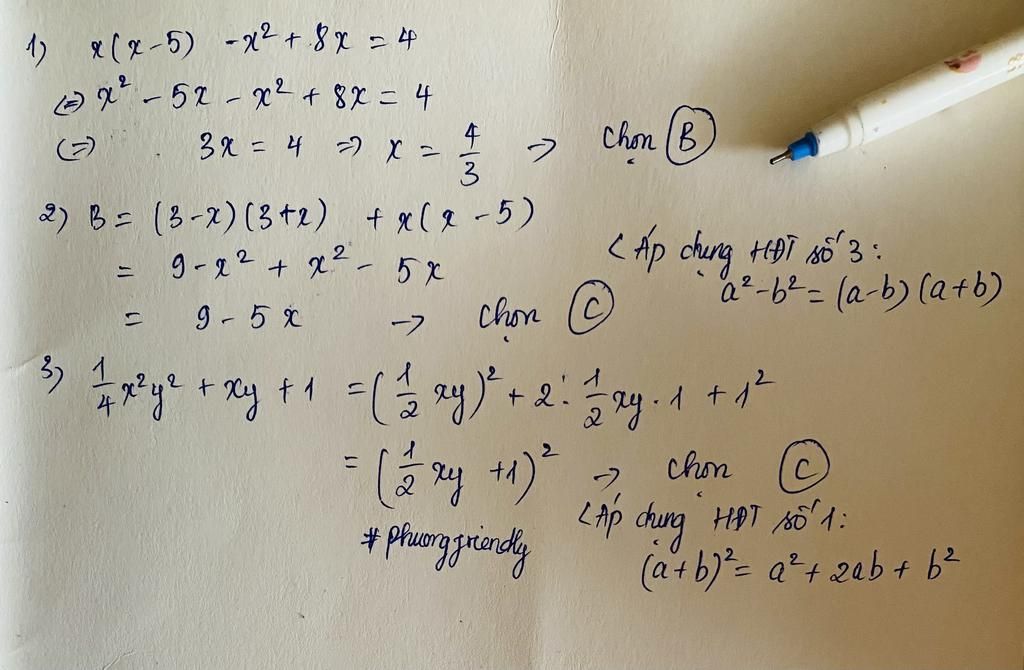 1) x(x-5) -x² + 8x = 4
(=) x² - 5x - x² + 8x = 4
(=) 3x = 4 => x = 4/3 -> Chọn (B)
2) B = (3-x)(3+x) + x(x-5)
= 9-x² + x² - 5x
< Áp dụng HĐT số 3:
a²-b² = (a-b)(a+b)
= 9 - 5x -> Chọn (C)
3) 1/4 x²y² + xy + 1 = (1/2 xy)² + 2 . 1/2 xy . 1 + 1²
= (1/2 xy +1)² -> Chọn (C)
< Áp dụng HĐT số 1:
(a+b)² = a² + 2ab + b²
#phuongfriendly